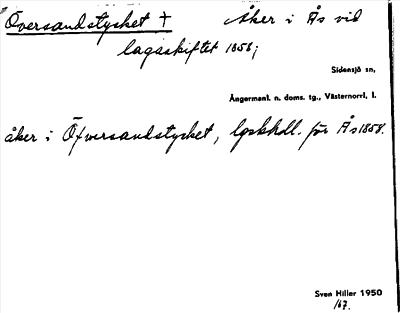 Översandstycket † Åker i Ås vid
lagaskiftet 1858;
Sidensjö sn,
Ångermanl. n. doms. tg., Västernorrl. l.
åker i Öfversandstycket, lgskhdl. för Ås 1858.
Sven Hiller 1950
/67.